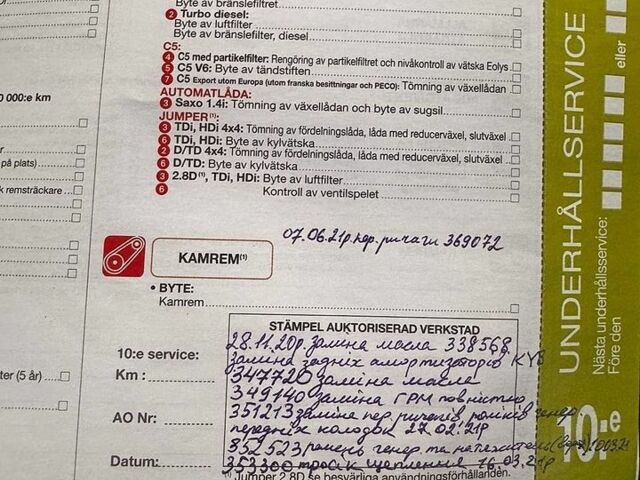 Byte av bränslefilter
2 Turbo diesel:
Byte av luftfilter
Byte av bränslefilter, diesel
C5:
4 C5 med partikelfilter: Rengöring av partikelfiltret och nivåkontroll av vätska Eolys
5 C5 V6: Byte av tändstiften
7 C5 Export utom Europa (utom franska besittningar och PECO): Tömning av växellådan
AUTOMATLÅDA:
3 Saxo 1.4i: Tömning av växellådan och byte av sugsil
JUMPER(1):
3 TDi, HDi 4x4: Tömning av fördelningslåda, låda med reducerväxel, slutväxel
6 TDi, HDi: Byte av kylvätska
2 D/TD 4x4: Tömning av fördelningslåda, låda med reducerväxel, slutväxel
6 D/TD: Byte av kylvätska
3 2.8D(1), TDi, HDi: Byte av luftfilter
6 Kontroll av ventilspelet
0 000:e km
på plats)
k remsträckare
ter (5 år)
07.06.21р. пер. ричаги 369072
KAMREM(1)
• BYTE:
Kamrem
STÄMPEL AUKTORISERAD VERKSTAD
28.11.20р. заміна масла 338568
заміна задніх амортизаторів KYB
347720 заміна масла
349140 заміна ГРМ повністю
351213 заміна пер. ричагів роликів генер.
передніх колодок 27.02.21р
352523 ремень генер та натяжитель
353300 тросік щеплення 16.03.21р
10:e service:
Km :
AO Nr:
Datum:
(1) Jumper 2.8D se besväriga användningsförhållanden.
UNDERHÅLLSERVICE
Nästa underhållsservice:
Före den
eller
10:e